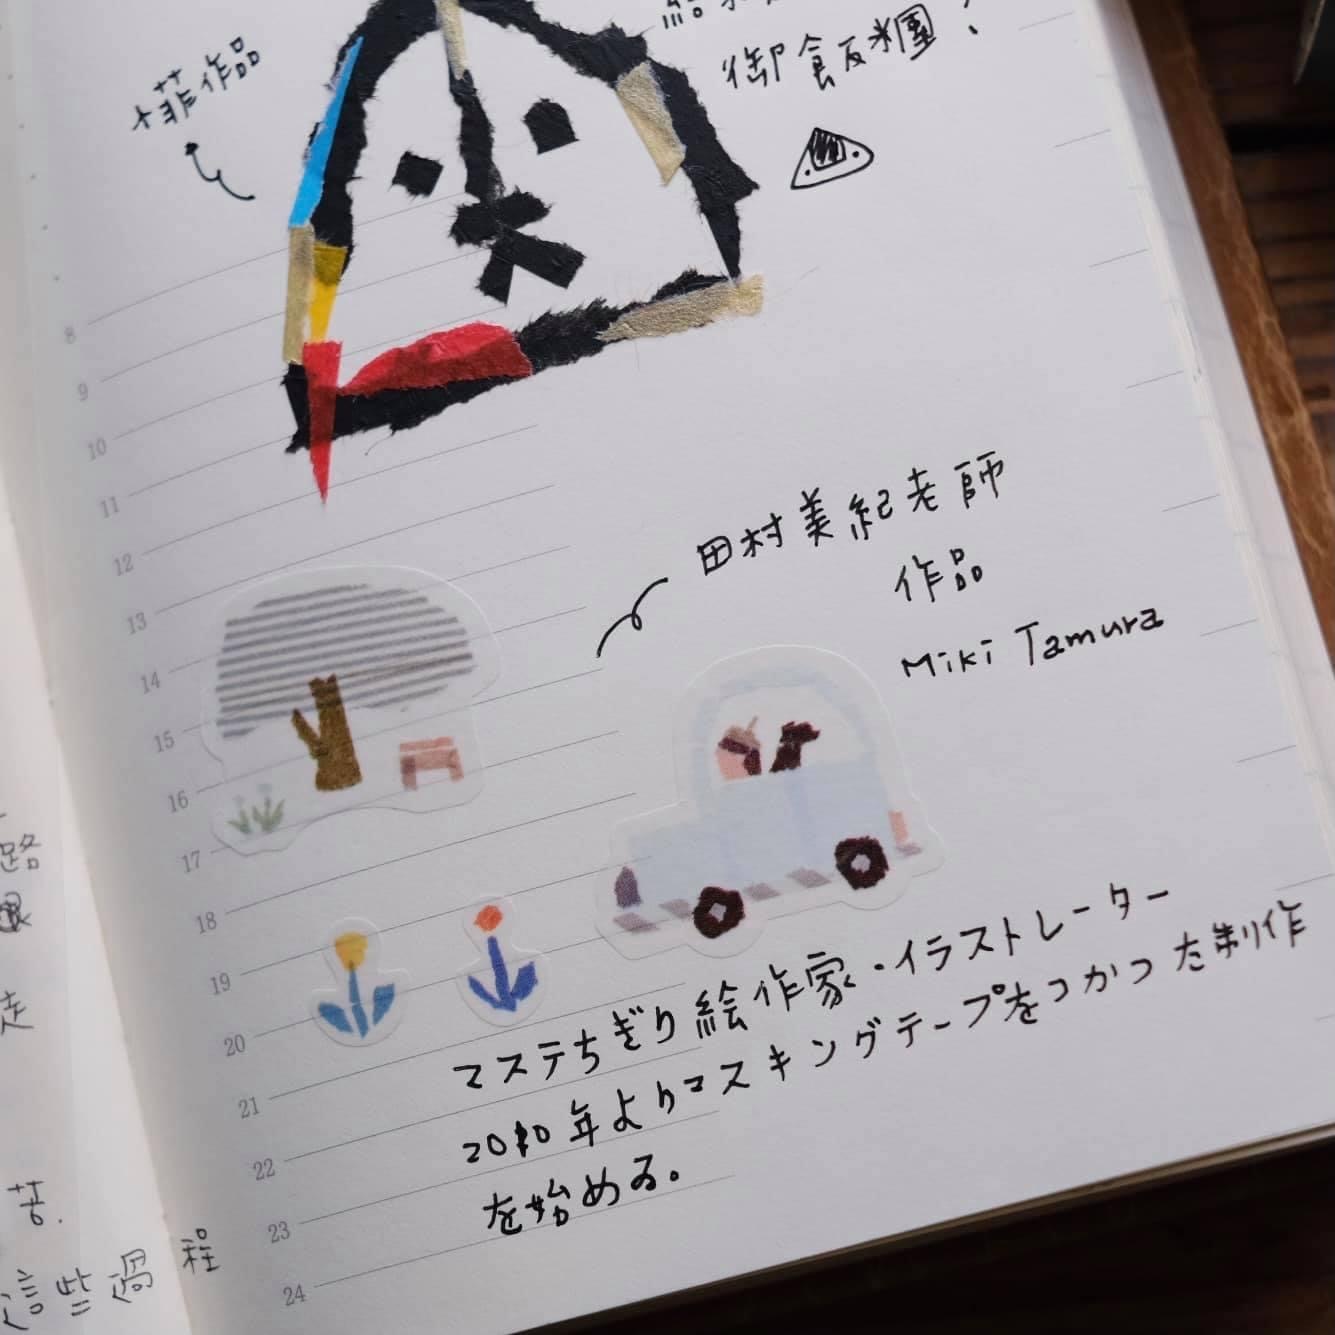 御飯糰?
菲作品
8
9
10
11
12
13
14
15
16
17
18
19
20
21
22
23
24
田村美紀老師
作品
Miki Tamura
マステちぎり絵作家・イラストレーター
2010年よりマスキングテープをつかった制作
を始める。
路
走
苦.
這些過程